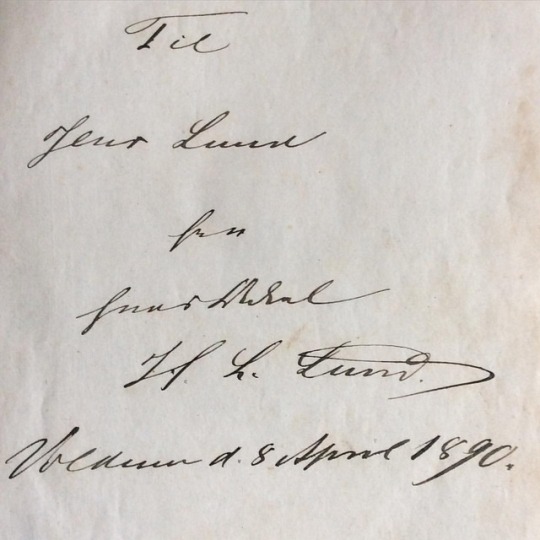 Til
Jens Lund
fra
hans Onkel
H. L. Lund.
d. 8 April 1890.